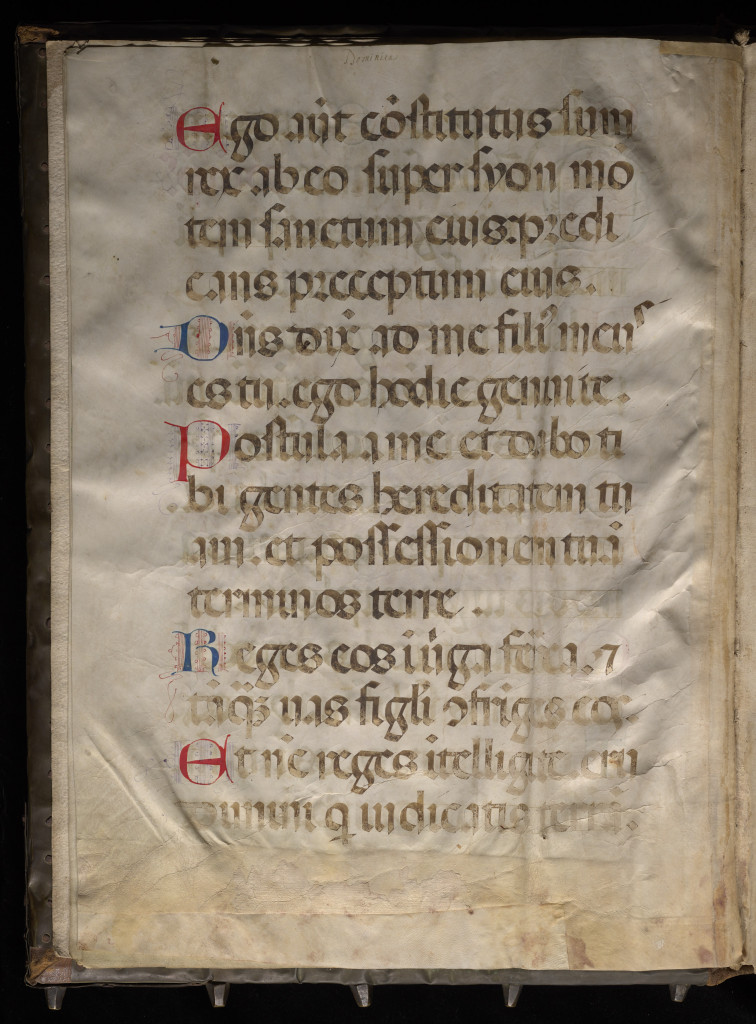 Dominica
Ego aūt cōstitutus sum
rex ab eo super syon mō
tem sanctum eius: predi
cans preceptum eius.
Dn̄s dix̄ ad me filiꝰ meus
es tu. ego hodie genui te.
Postula a me et dabo ti
bi gentes hereditatem tu
am. et possessionem tuā
terminos terre.
Reges eos ī uīga fe̅rea. ⁊
tāqꝫ uas figli ꝯfriges eos.
Et nc̄ reges ītelligite. eru
dimini q̄ iudicatis terrā.